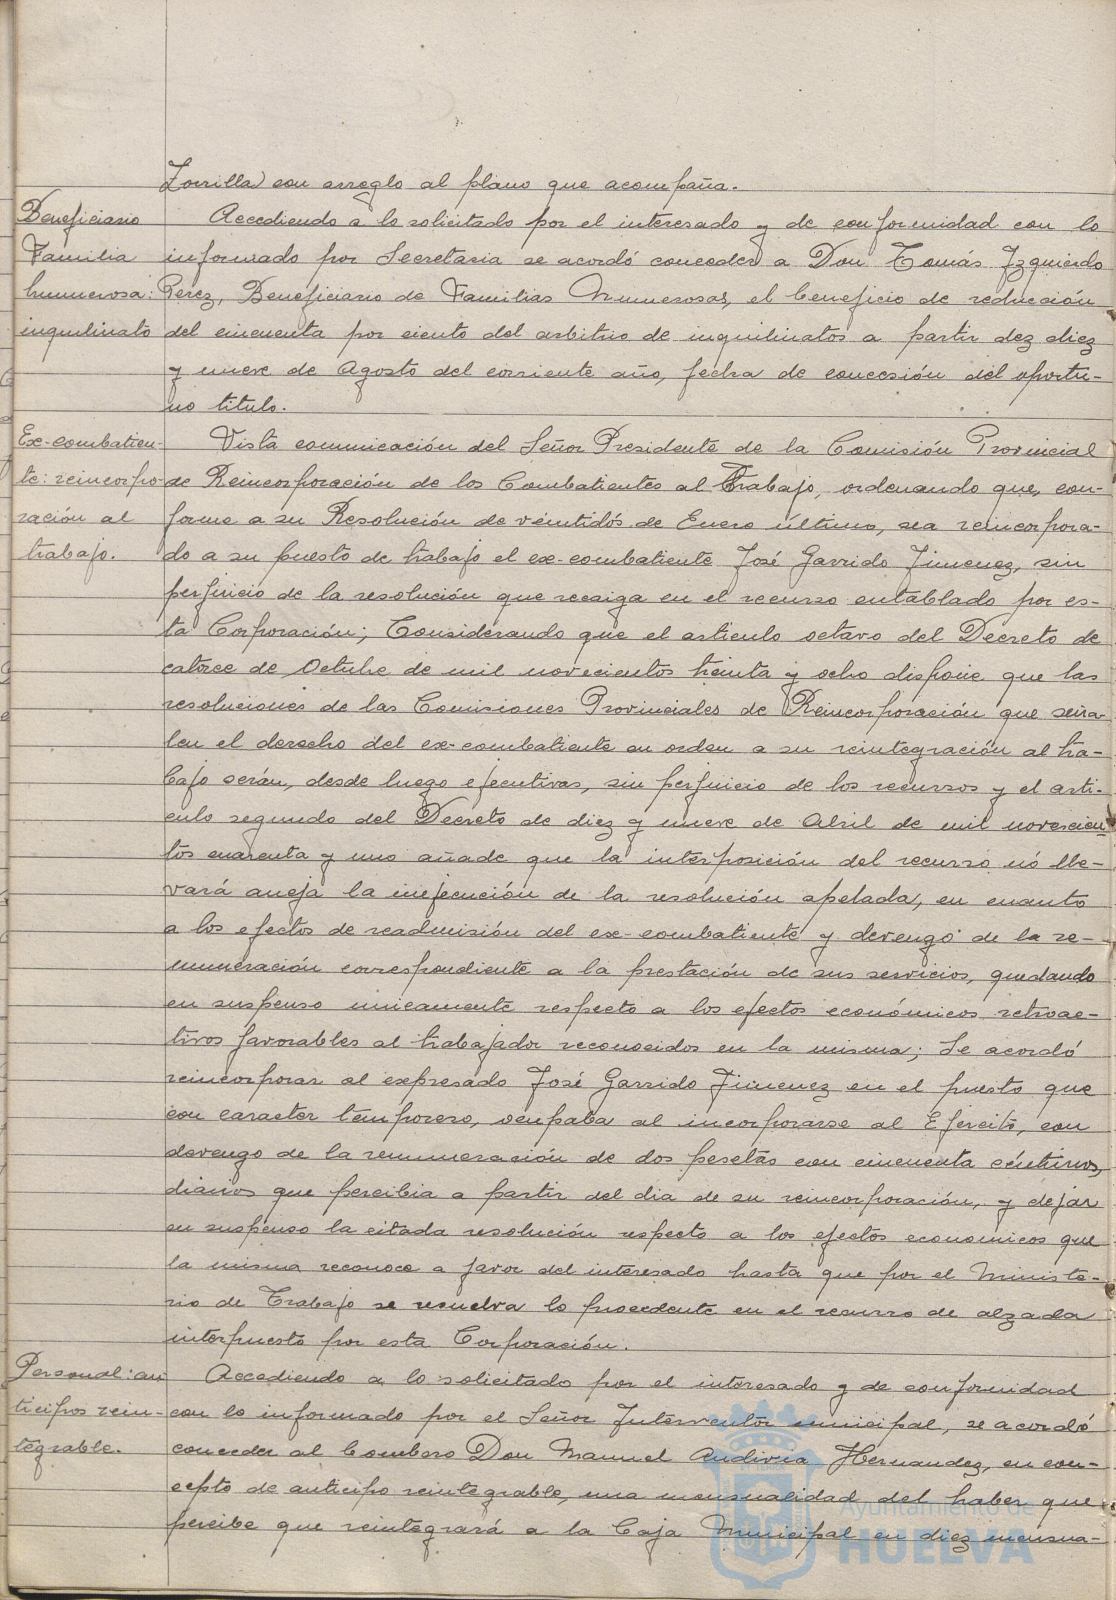 Zorrilla) con arreglo al plano que acompaña.
Beneficiario
Familia
humerosa:
inquilinato
Accediendo a lo solicitado por el interesado y de conformidad con lo
informado por Secretaria se acordó conceder a Don Tomás Izquierdo
Perez, Beneficiario de Familias Numerosas, el beneficio de reducción
del cincuenta por ciento del arbitrio de inquilinatos a partir dez diez
y nueve de Agosto del corriente año, fecha de concesión del oportu-
no titulo.
Ex-combatien-
te: reincorpo-
ración al
trabajo.
Vista comunicación del Señor Presidente de la Comisión Provincial
de Reincorporación de los Combatientes al Trabajo, ordenando que, con-
forme a su Resolución de veintidós de Enero último, sea reincorpora-
do a su puesto de trabajo el ex-combatiente José Garrido Jimenez, sin
perjuicio de la resolución que recaiga en el recurso entablado por es-
ta Corporación; Considerando que el articulo octavo del Decreto de
catorce de Octubre de mil novecientos treinta y ocho dispone que las
resoluciones de las Comisiones Provinciales de Reincorporación que seña-
len el derecho del ex-combatiente en orden a su reintegración al tra-
bajo serán, desde luego ejecutivas, sin perjuicio de los recursos y el arti-
culo segundo del Decreto de diez y nueve de Abril de mil novecien-
tos cuarenta y uno añade que la interposición del recurso nó lle-
vará aneja la inejecución de la resolución apelada, en cuanto
a los efectos de readmisión del ex-combatiente y devengo de la re-
muneración correspondiente a la prestación de sus servicios, quedando
en suspenso unicamente respecto a los efectos económicos retroac-
tivos favorables al trabajador reconocidos en la misma; Se acordó
reincorporar al expresado José Garrido Jimenez en el puesto que
con caracter temporero, ocupaba al incorporarse al Ejercito, con
devengo de la remuneración de dos pesetas con cincuenta céntimos,
diarios que percibia a partir del dia de su reincorporación, y dejar
en suspenso la citada resolución respecto a los efectos economicos que
la misma reconoce a favor del interesado hasta que por el Ministe-
rio de Trabajo se resuelva lo procedente en el recurso de alzada
interpuesto por esta Corporación.
Personal: an
ticipos rein-
tegrable.
Accediendo a lo solicitado por el interesado y de conformidad
con lo informado por el Señor Interventor municipal, se acordó
conceder al bombero Don Manuel Andivia Hernandez, en con-
cepto de anticipo reintegrable, una mensualidad del haber que
percibe que reintegrará a la Caja Municipal en diez mensua-
Ayuntamiento de
HUELVA